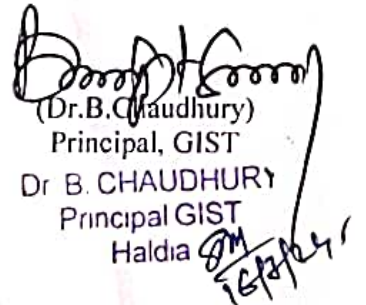 (Dr.B.Chaudhury)
Principal, GIST
Dr B. CHAUDHURY
Principal GIST
Haldia
16/7/24